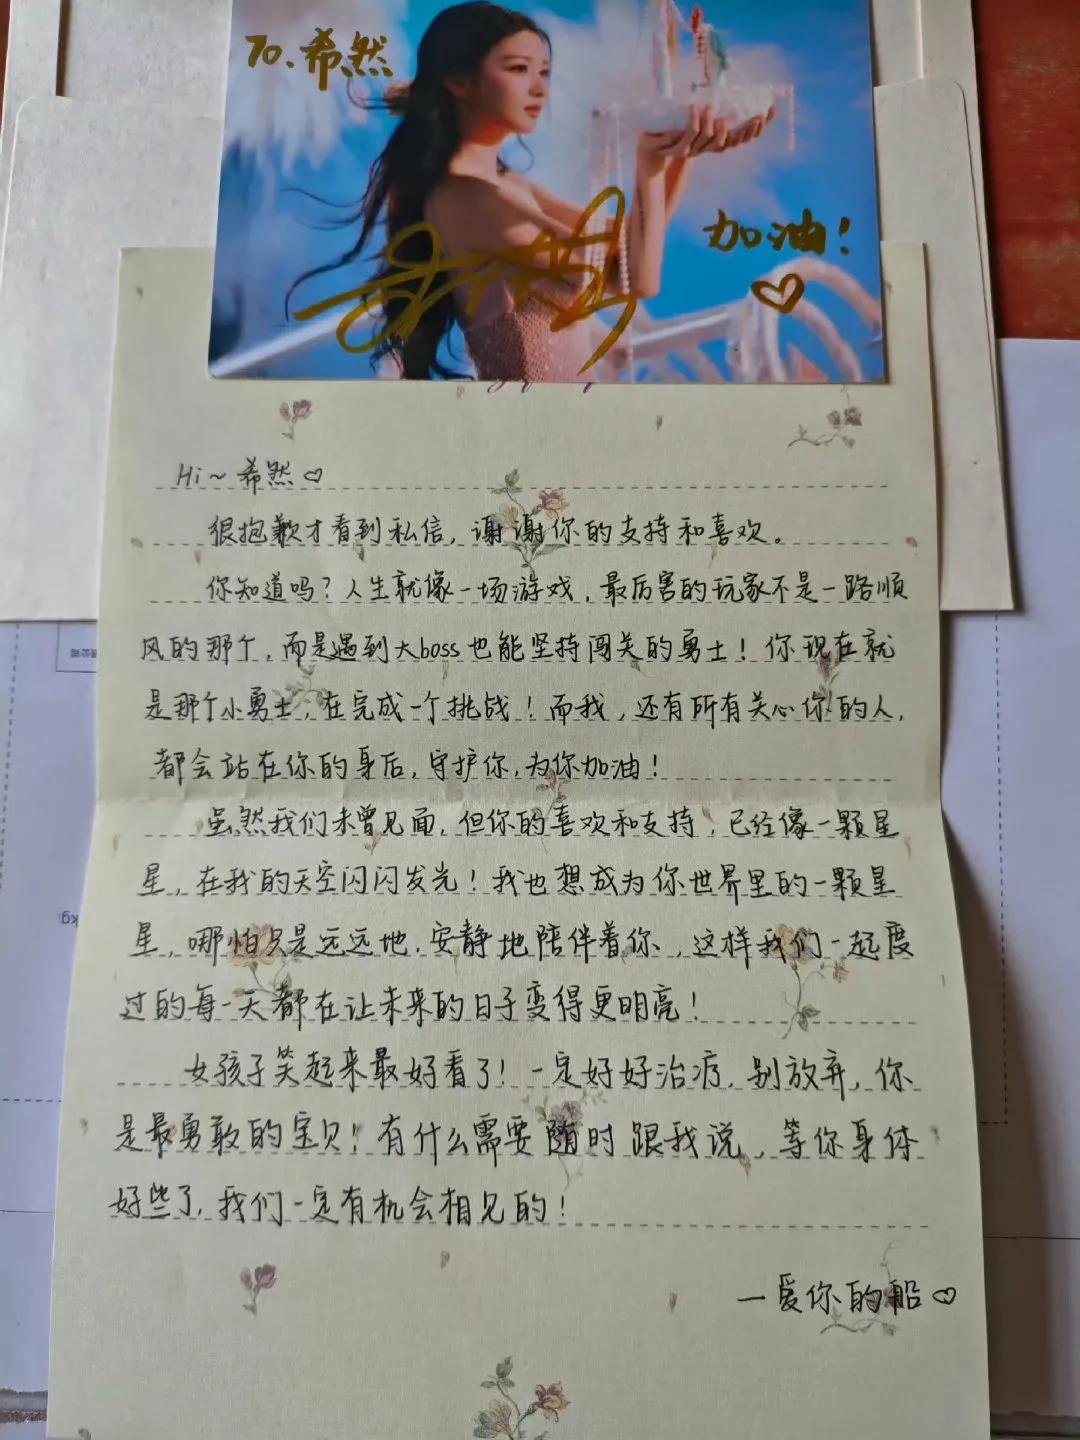 To.希然
加油！
Hi～希然♡
很抱歉才看到私信，谢谢你的支持和喜欢。
你知道吗？人生就像一场游戏，最厉害的玩家不是一路顺
风的那个，而是遇到大boss也能坚持闯关的勇士！你现在就
是那个小勇士，在完成一个挑战！而我，还有所有关心你的人，
都会站在你的身后，守护你，为你加油！
虽然我们未曾见面，但你的喜欢和支持，已经像一颗星
星，在我的天空闪闪发光！我也想成为你世界里的一颗星
星，哪怕只是远远地，安静地陪伴着你，这样我们一起度
过的每一天都在让未来的日子变得更明亮！
女孩子笑起来最好看了！一定好好治疗，别放弃，你
是最勇敢的宝贝！有什么需要随时跟我说，等你身体
好些了，我们一定有机会相见的！
—爱你的船♡
kg